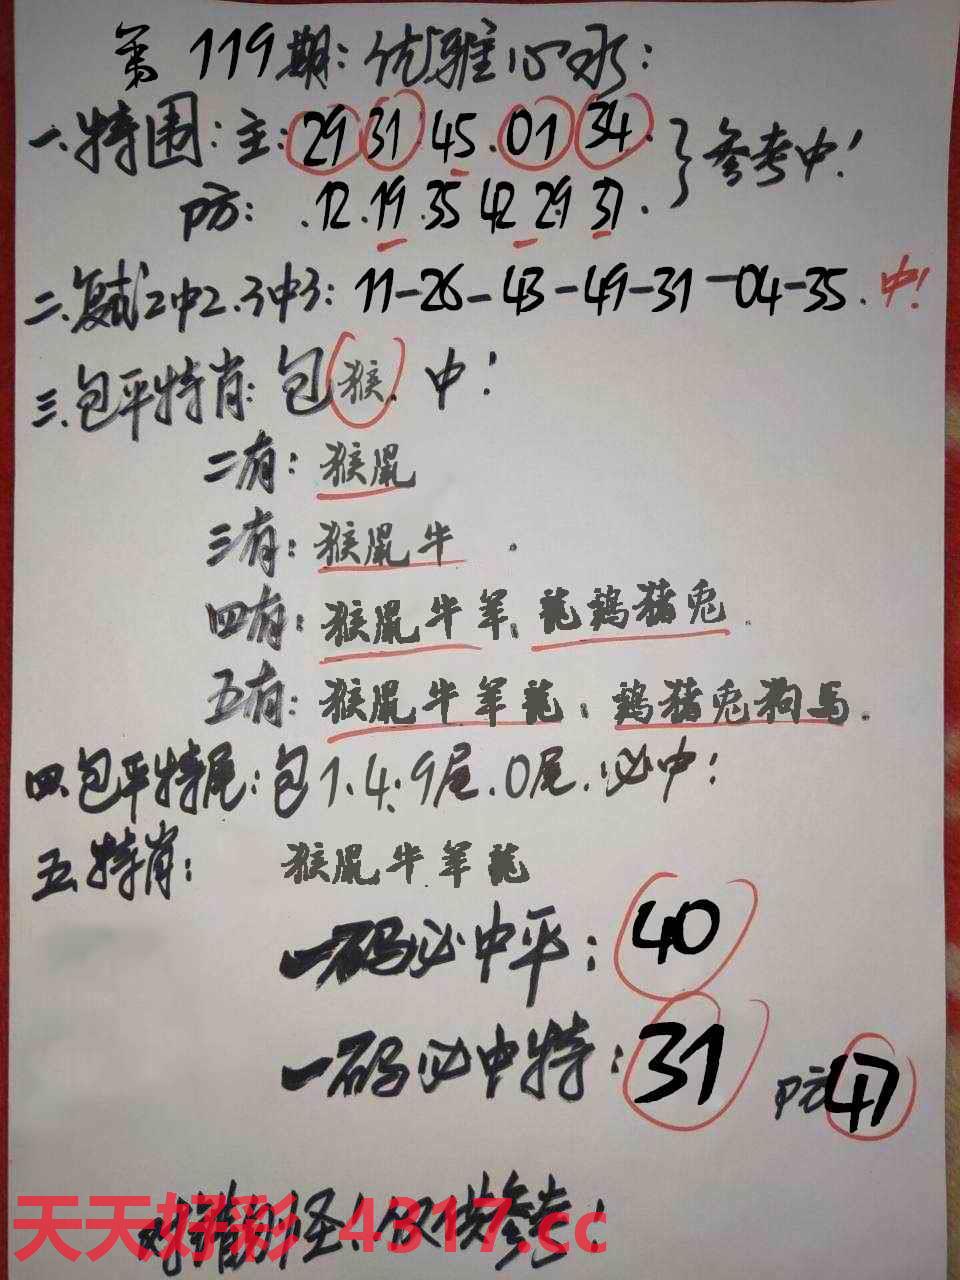 第119期:优雅心水:
一.特围:主:29 31 45.01 34.}参考中!
防:.12.19.35 42 29 37.
二.复试2中2.3中3:11-26-43-49-31-04-35.中!
三.包平特肖:包猴.中!
二有:猴鼠
三有:猴鼠牛.
四有:猴鼠牛羊.龙鸡猪兔.
五有:猴鼠牛羊龙:鸡猪兔狗马.
四.包平特尾:包1.4.9尾.0尾.必中!
五.特肖:猴鼠牛羊龙
一码必中平:40
一码必中特:31 防47
对错勿怪!仅供参考!
天天好彩 4317.cc